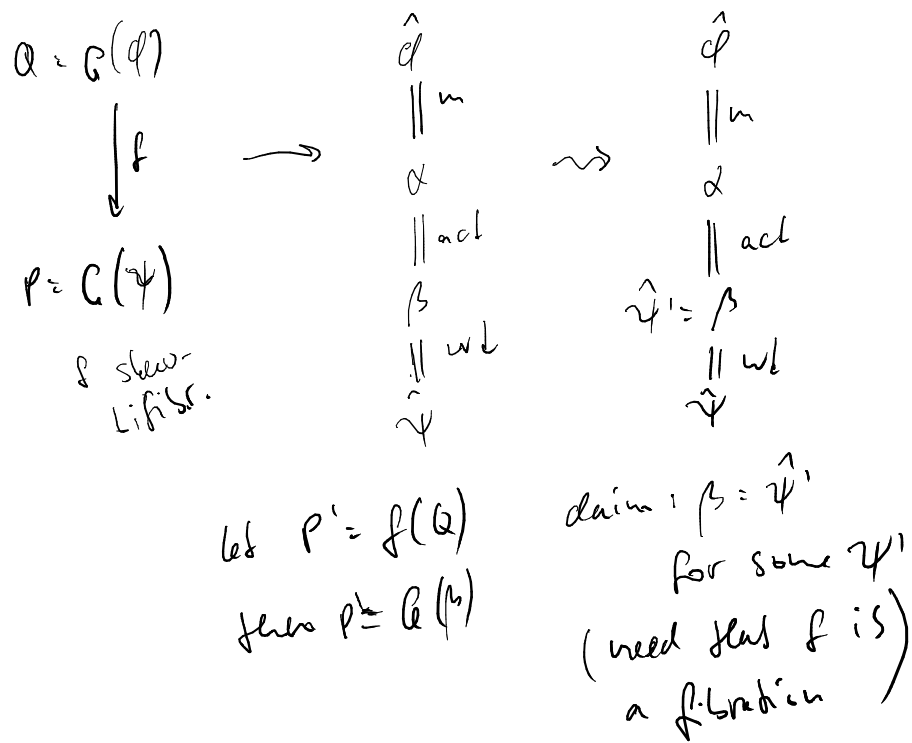 Q = G(φ)
f
P = G(ψ)
f skew-
bifibr.
φ̂
m
α
acl
β
wl
ψ̂
φ̂
m
α
acl
ψ̂' = β
wl
ψ̂
let P' = f(Q)
then P' = G(β)
claim: β = ψ̂'
for some ψ'
(need that f is
a fibration)